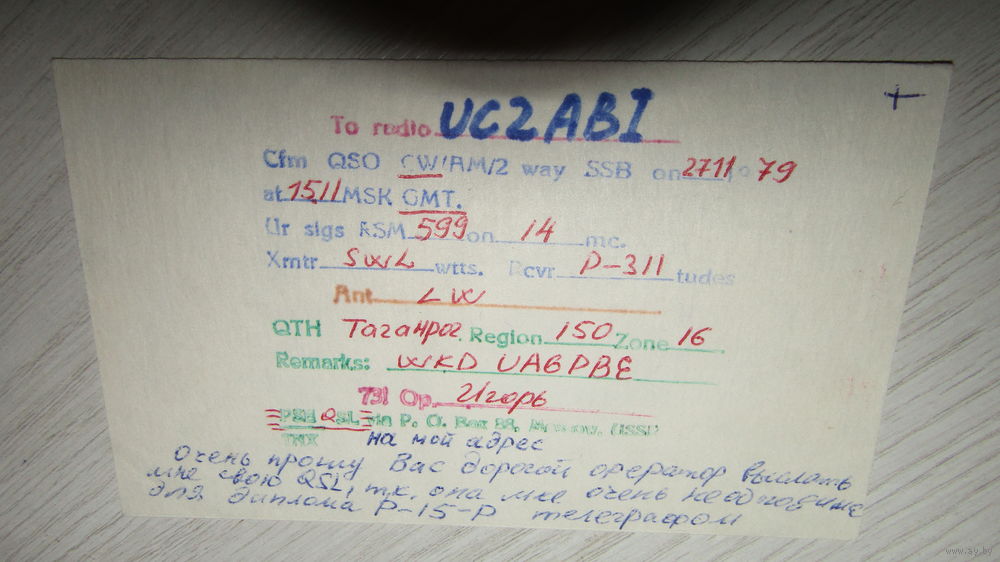 To radio UC2ABI
Cfm QSO CW/AM/2 way SSB on 2711 79
at 1511 MSK GMT.
Ur sigs RSM 599 on 14 mc.
Xmtr SWL wtts. Rcvr P-311 tudes
Ant LW
QTH Таганрог Region 150 Zone 16
Remarks: WKD UA6PBE
73! Op. Игорь
PSE QSL via P. O. Box 88, Moscow, USSR
TNX на мой адрес
Очень прошу Вас дорогой оператор выслать
мне свою QSL, т.к. она мне очень необходима
для диплома P-15-P телеграфом
www.ay.by